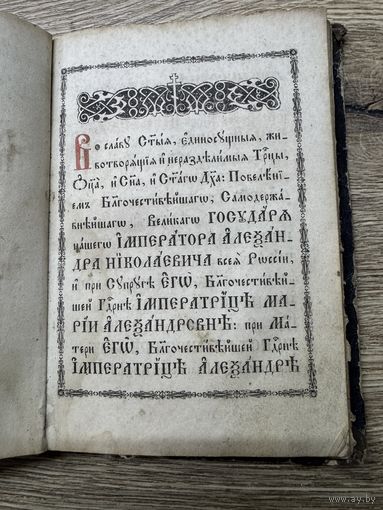 Во славу Ст҃ыѧ, є҆диносꙋщныѧ, жи-
вотворѧщїѧ и҆ нераздѣлимыѧ Трⷪ҇цы,
Ѻ҆ц҃а, и҆ Сн҃а, и҆ Ст҃агѡ Дх҃а: Повелѣнї-
емъ Благочестивѣйшагѡ, Самодержа-
внѣйшагѡ, Великагѡ ГОСУДАРѦ
нашегѡ І҆МПЕРАТОРА А҆ЛЕѮА́Н-
ДРА НІКОЛАЕВИЧА всеѧ̀ Рѡссїи,
и҆ при Сꙋпрꙋгѣ Є҆ГѠ̀, Благочестивѣй-
шей Гдⷭ҇рнѣ І҆МПЕРАТРИЦѢ МА-
РІИ А҆ЛЕѮАНДРОВНѢ: при Ма-
тери Є҆ГѠ̀, Благочестивѣйшей Гдⷭ҇рнѣ
І҆МПЕРАТРИЦѢ А҆ЛЕѮАНДРѢ
www.ay.by